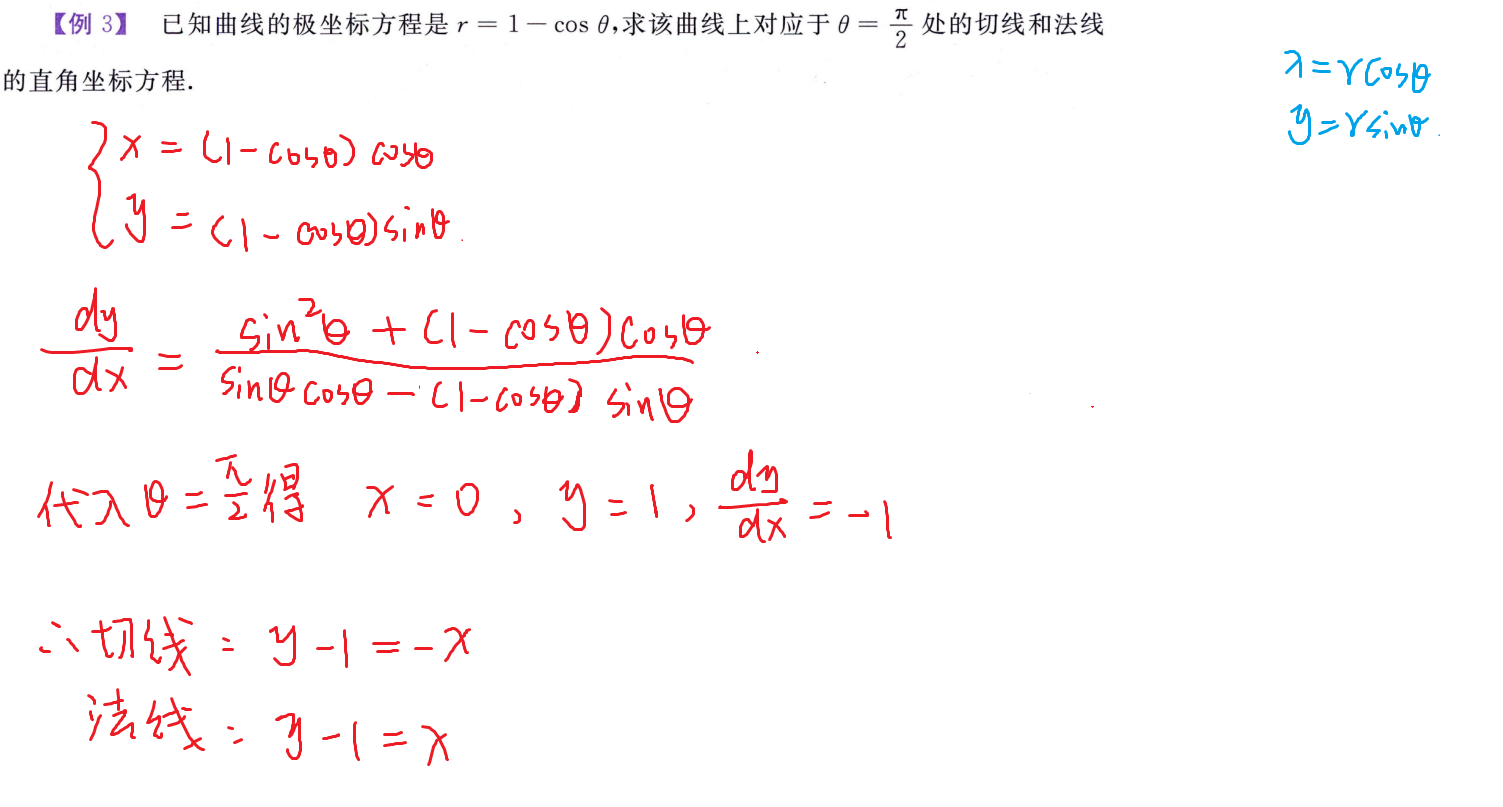 【例 3】 已知曲线的极坐标方程是 r = 1 − cos θ,求该曲线上对应于 θ = π/2 处的切线和法线
的直角坐标方程.
x = r cosθ
y = r sinθ.
{ x = (1-cosθ) cosθ
y = (1-cosθ) sinθ.
dy/dx = (sin²θ + (1-cosθ)cosθ)/(sinθcosθ - (1-cosθ) sinθ)
代入 θ = π/2 得 x = 0, y = 1, dy/dx = -1
∴ 切线: y - 1 = -x
法线: y - 1 = x